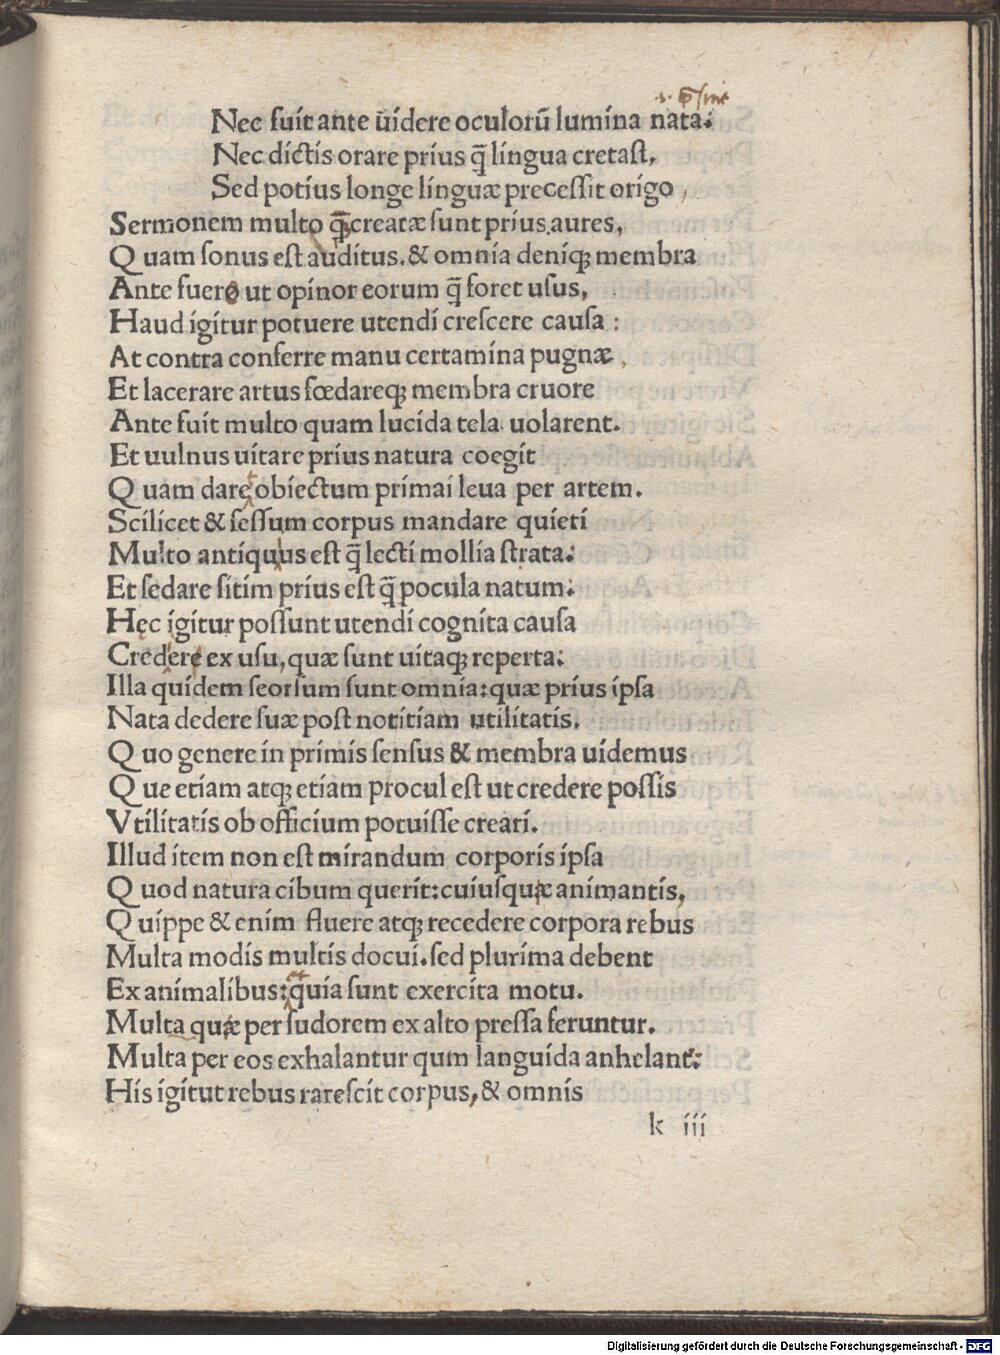 Nec fuit ante uidere oculorū lumina nata:
Nec dictis orare prius q̄ lingua cretast,
Sed potius longe linguæ precessit origo,
Sermonem multo q̄; creatæ sunt prius aures,
Quam sonus est auditus. & omnia deniq; membra
Ante fuere ut opinor eorum q̄ foret usus,
Haud igitur potuere utendi crescere causa:
At contra conferre manu certamina pugnæ,
Et lacerare artus fœdareq; membra cruore
Ante fuit multo quam lucida tela uolarent.
Et uulnus uitare prius natura coegit
Quam daret obiectum primai leua per artem.
Scilicet & fessum corpus mandare quieti
Multo antiquus est q̄ lecti mollia strata:
Et sedare sitim prius est q̄ pocula natum:
Hęc igitur possunt utendi cognita causa
Credere ex usu, quæ sunt uitaq; reperta:
Illa quidem seorsum sunt omnia: quæ prius ipsa
Nata dedere suæ post notitiam utilitatis.
Quo genere in primis sensus & membra uidemus
Que etiam atq; etiam procul est ut credere possis
Vtilitatis ob officium potuisse creari.
Illud item non est mirandum corporis ipsa
Quod natura cibum querit: cuiusquæ animantis,
Quippe & enim fluere atq; recedere corpora rebus
Multa modis multis docui. sed plurima debent
Ex animalibus: quia sunt exercita motu.
Multa quæ per sudorem ex alto pressa feruntur.
Multa per eos exhalantur qum languida anhelant:
His igitut rebus rarescit corpus, & omnis
k iii
Digitalisierung gefördert durch die Deutsche Forschungsgemeinschaft - DFG